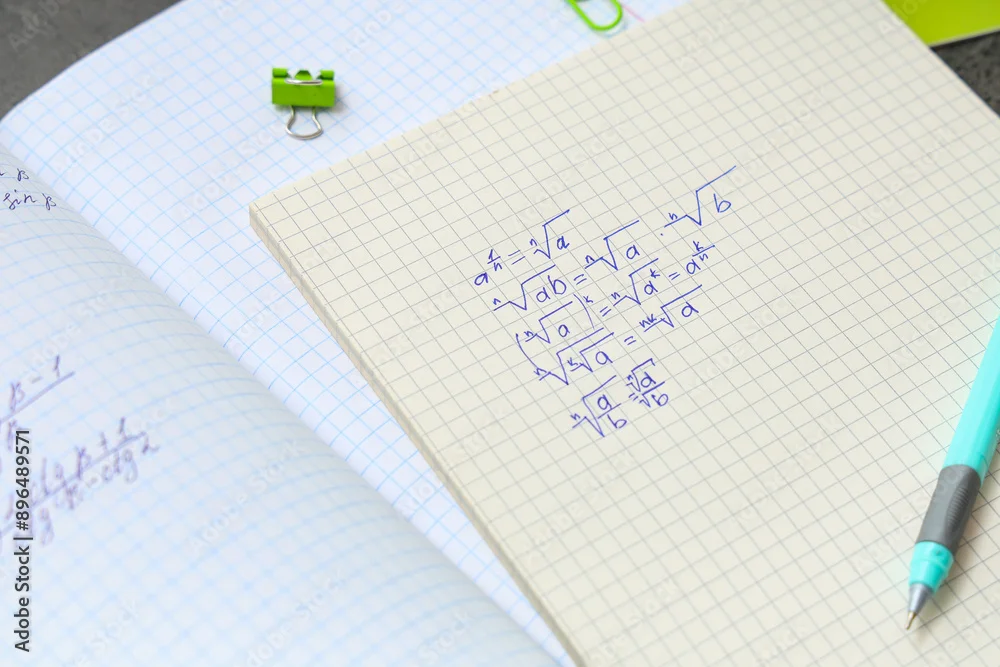 a^(1/n) = ⁿ√a
ⁿ√ab = ⁿ√a · ⁿ√b
(ⁿ√a)^k = ⁿ√a^k = a^(k/n)
ⁿ√ᵏ√a = ⁿᵏ√a
ⁿ√(a/b) = ⁿ√a/ⁿ√b
β
sin β
β - 1
Adobe Stock | #896489571